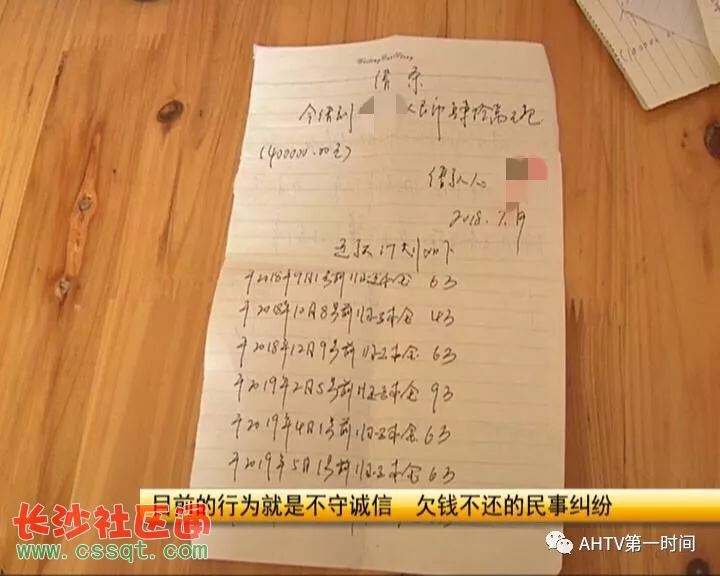 借条
今借到 人民币肆拾万元
(400000.00元)
借款人
2018.7.
还款计划如下
于2018年9月1号前归还本金 6万
于2018年10月8号前归还本金 4万
于2018年12月9号前归还本金 6万
于2019年2月5号前归还本金 9万
于2019年4月1号前归还本金 6万
于2019年5月1号前归还本金 6万
目前的行为就是不守诚信 欠钱不还的民事纠纷
长沙社区通
www.cssqt.com
AHTV第一时间